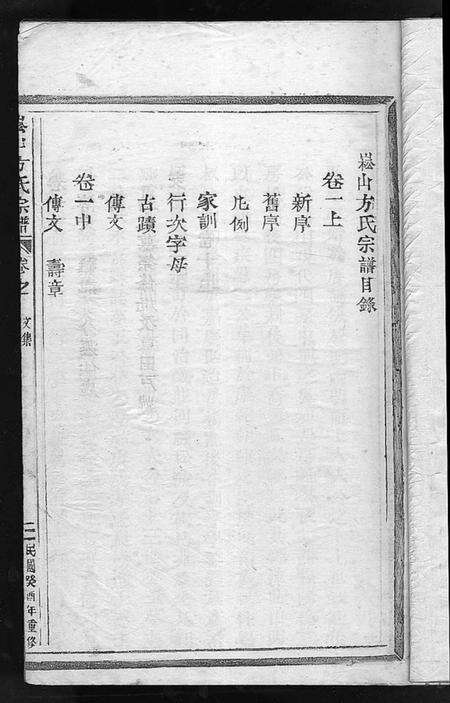 崧山方氏宗譜目錄
卷一上
新序
舊序
凡例
家訓
行次字母
古蹟
傳文
卷一中
傳文 壽章
方氏宗譜
卷之
文集
民國癸酉年重修